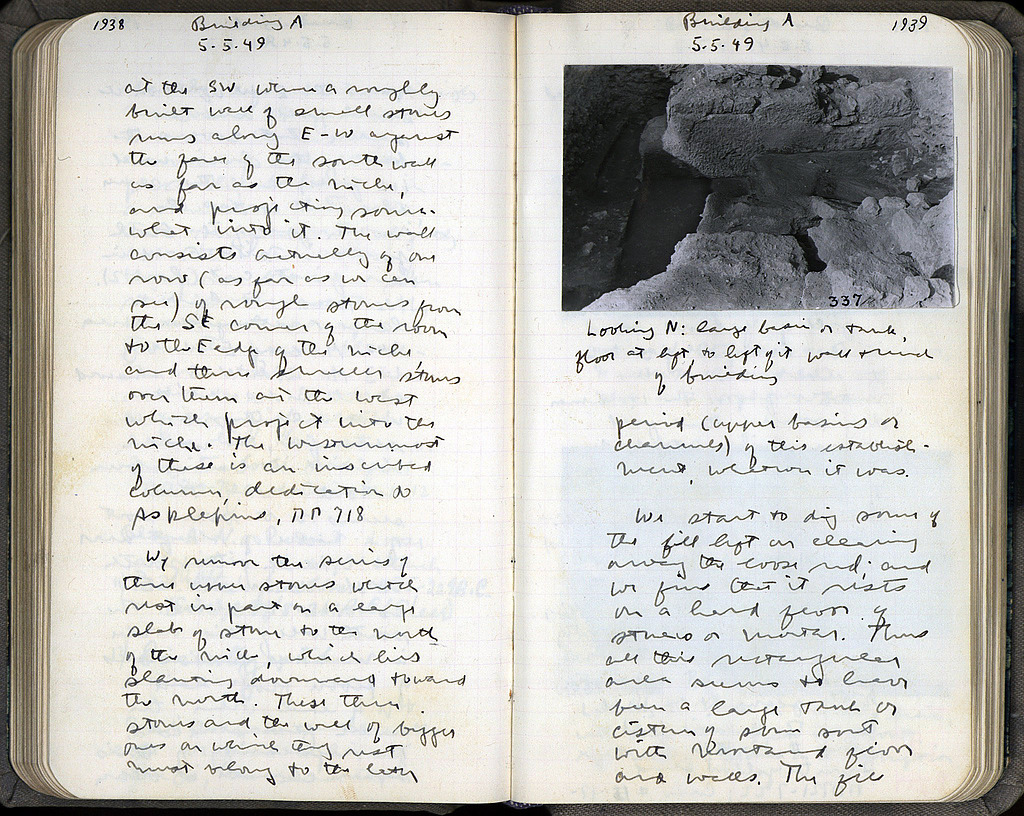 1938
Building A
5.5.49
at the SW where a roughly
built wall of small stones
runs along E-W against
the face of the south wall
as far as the niche,
and projecting some-
what into it. The wall
consists actually of one
row (as far as we can
see) of rough stones from
the SE corner of the room
to the E edge of the niche,
and three smaller stones
over them at the west
which project into the
niche. The westernmost
of these is an inscribed
column, dedication to
Asklepius,
We remove the series of
three upper stones which
rest in part on a large
slab of stone to the north
of the niche, which lies
slanting downward toward
the north. These three
stones and the wall of bigger
ones on which they rest
must belong to the later
Building A
1939
5.5.49
337
Looking N: large basin or tank,
floor at left to left of it wall
of building
period (upper basins or
channels) of this establish-
ment, whatever it was.
We start to dig some of
the fill left on clearing
away the loose and
we find that it rests
on a hard floor of
stones or mortar. Thus
all this rectangular
area seems to have
been a large tank or
cistern of some sort
with floor
and walls. The fill